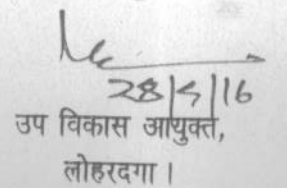 28/5/16
उप विकास आयुक्त,
लोहरदगा।